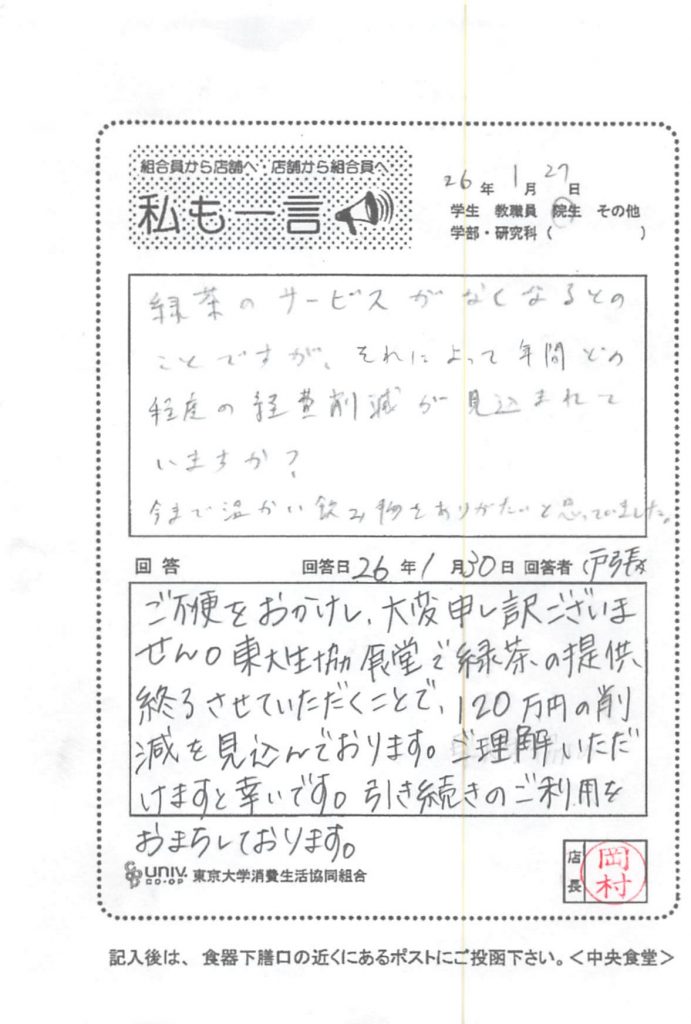 組合員から店舗へ・店舗から組合員へ
私も一言
26年 1月 27日
学生 教職員 院生 その他
学部・研究科( )
緑茶のサービスがなくなるとの
ことですが、それによって年間どの
程度の経費削減が見込まれて
いますか?
今まで温かい飲み物をありがたいと思っていました。
回答 回答日 26年 1月 30日 回答者 戸張
ご不便をおかけし、大変申し訳ございま
せん。東大生協食堂で緑茶の提供、
終了させていただくことで、120万円の削
減を見込んでおります。ご理解いただ
けますと幸いです。引き続きのご利用を
おまちしております。
UNIV. CO-OP 東京大学消費生活協同組合
店長 岡村
記入後は、食器下膳口の近くにあるポストにご投函下さい。<中央食堂>